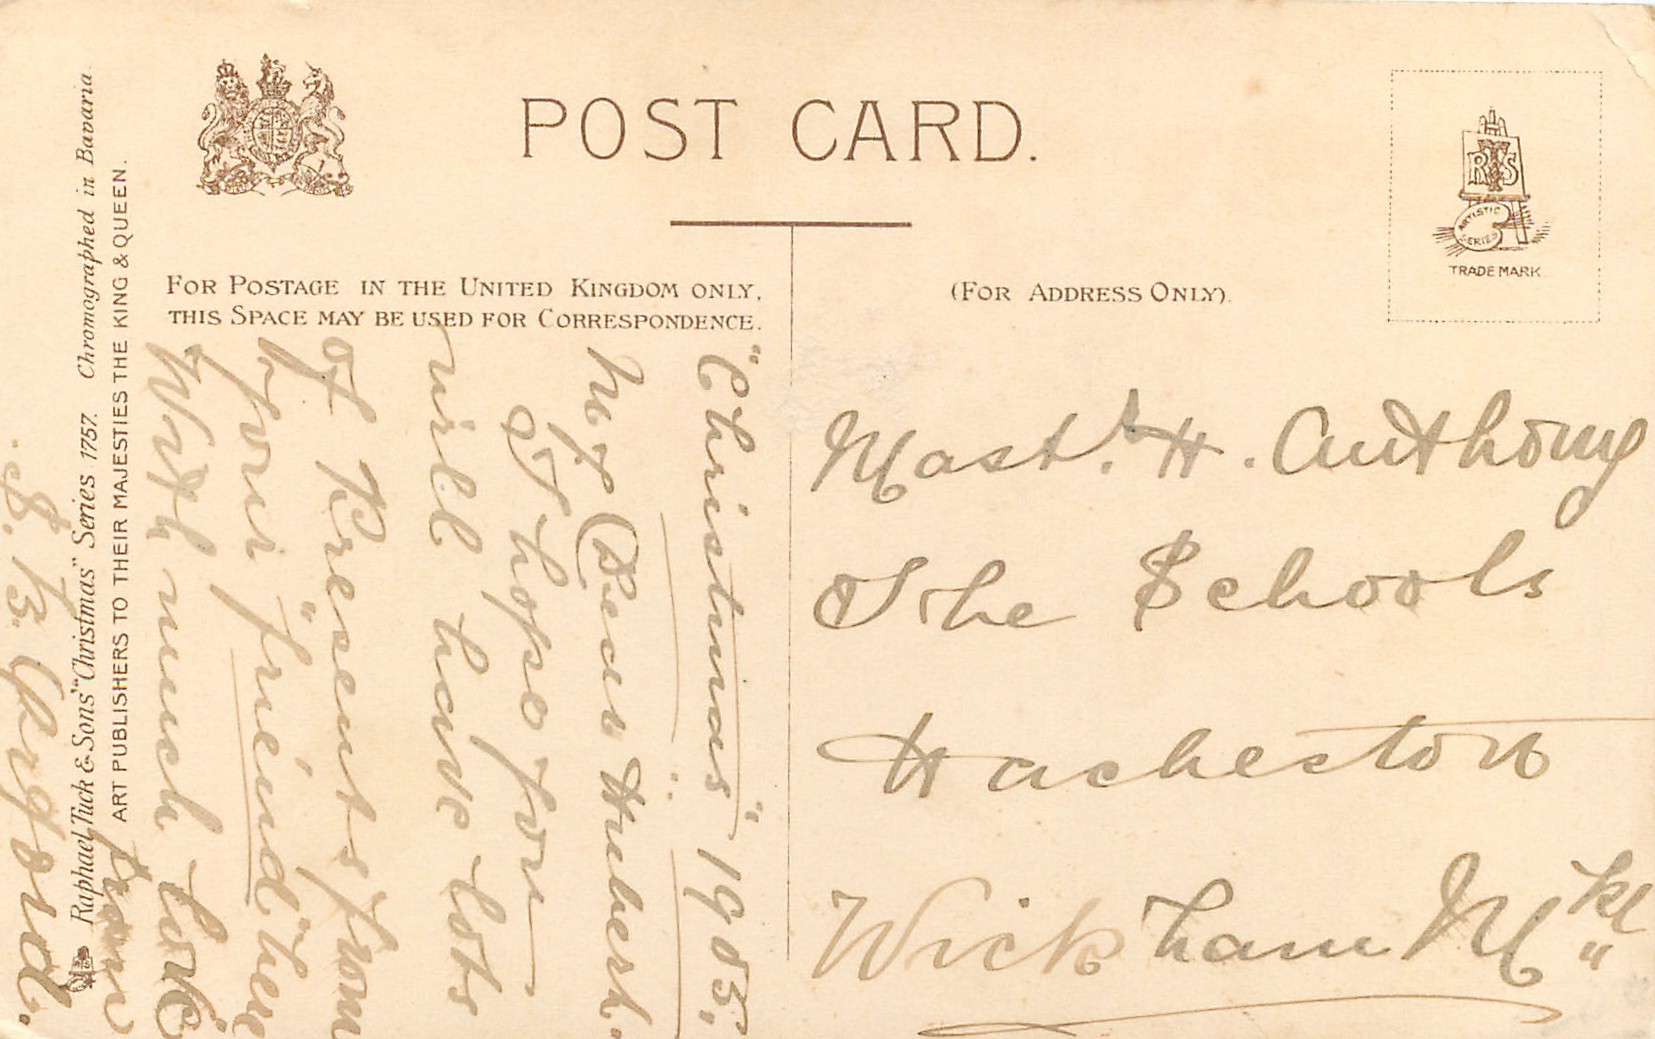 POST CARD.
RTS
ARTISTIC
SERIES
TRADE MARK
FOR POSTAGE IN THE UNITED KINGDOM ONLY,
THIS SPACE MAY BE USED FOR CORRESPONDENCE.
(FOR ADDRESS ONLY).
Raphael Tuck & Sons' "Christmas" Series 1757. Chromographed in Bavaria
ART PUBLISHERS TO THEIR MAJESTIES THE KING & QUEEN.
"Christmas" 1905.
My Dear Hubert.
I hope you
will have lots
of Presents from
your "friend" then
With much love
from
S. B.
Mastr. H. Anthony
The Schools
Hacheston
Wickham Mkt